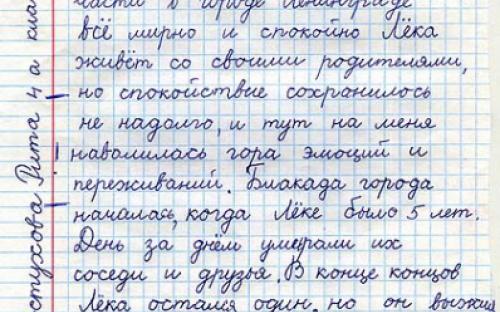 части в городе Ленинграде
всё мирно и спокойно Лёка
живёт со своими родителями,
но спокойствие сохранилось
не надолго, и тут на меня
навалилась гора эмоций и
переживаний. Блакада города
началась, когда Лёке было 5 лет.
День за днём умерали их
соседи и друзья. В конце концов
Лёка остался один, но он выжил
Рита 4 а кла